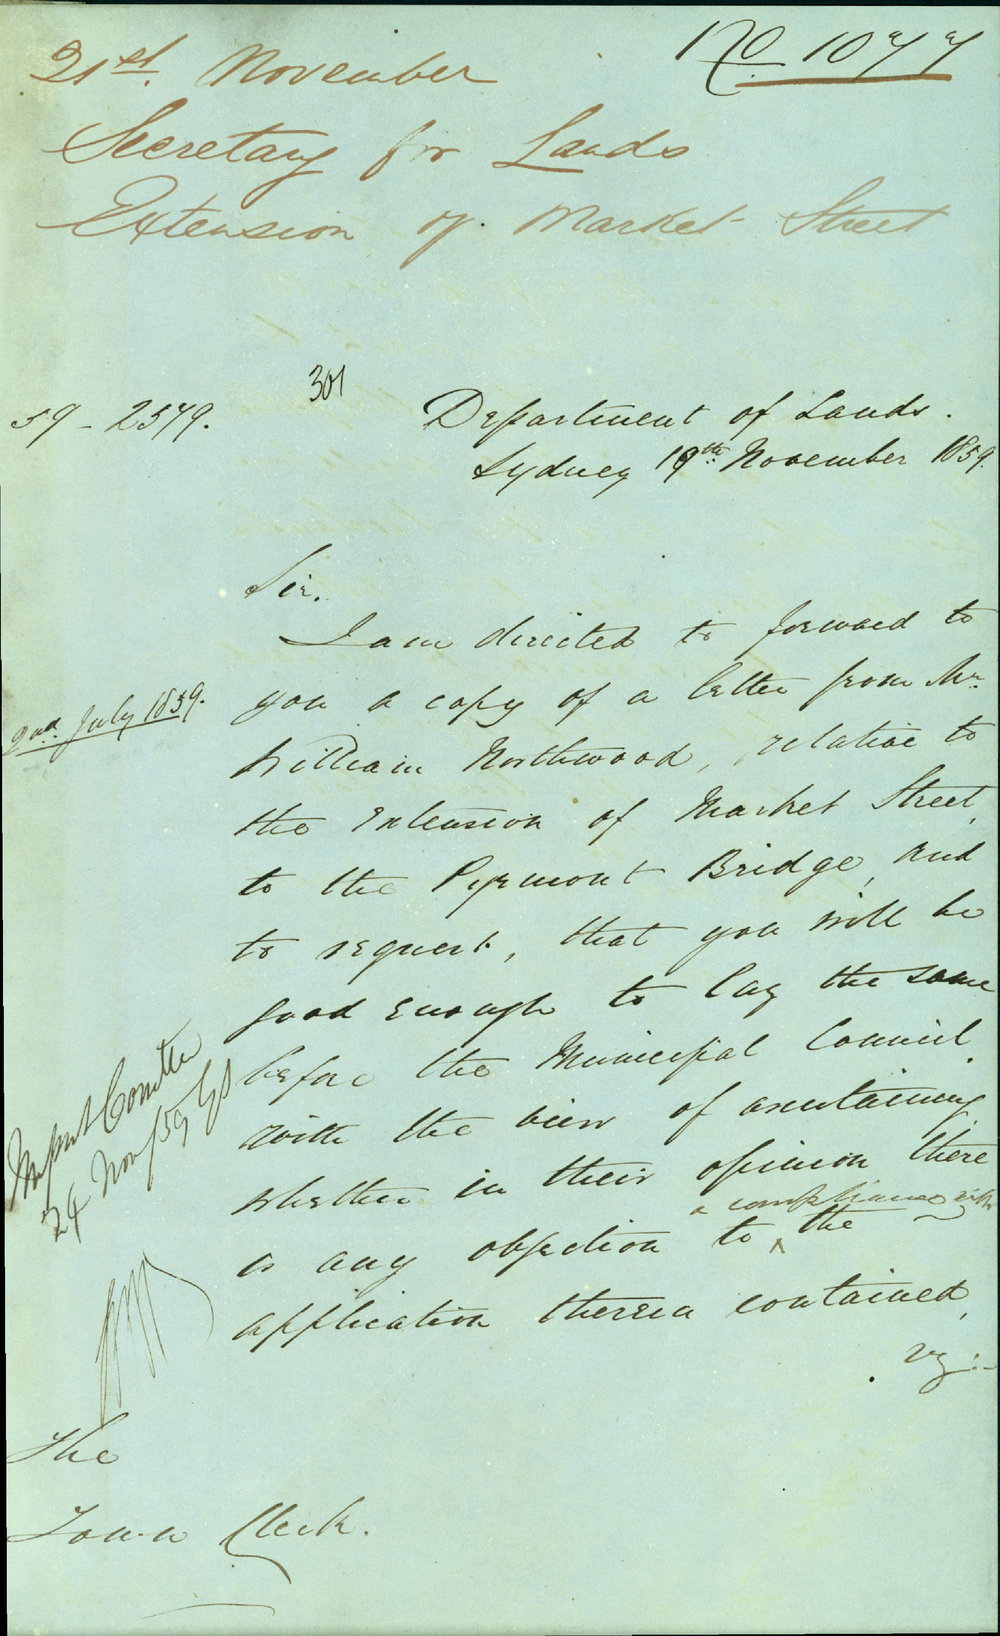 No 1077
21st November
Secretary for Lands
Extension of Market Street
301
59-2579.
Department of Lands.
Sydney 19th November 1859.
Sir,
I am directed to forward to
2nd July 1859.
you a copy of a letter from Mr.
William Northwood, relative to
the Extension of Market Street,
to the Pyrmont Bridge, and
to request, that you will be
good enough to lay the same
before the Municipal Council
with the view of ascertaining
whether in their opinion there
a compliance with
is any objection to ^ the
application therein contained,
viz:-
Impvt Comttee
24 Nov /59
The
Town Clerk.